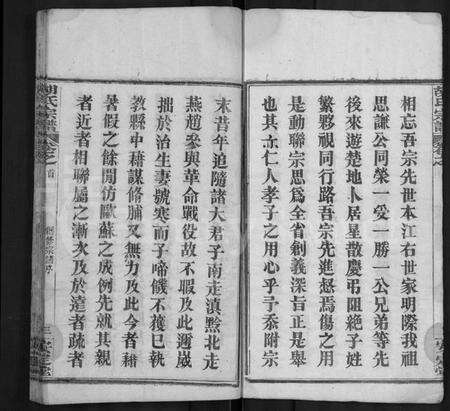 相忘吾宗先世本江右世家明際我祖
思謙公同榮一受一勝一公兄弟等先
後來遊楚地卜居星散慶弔阻絕子姓
繁夥視同行路吾宗先進惄焉傷之用
是動聯宗思爲全省創義深旨正是舉
也其亦仁人孝子之用心乎予忝附宗
末昔年追隨諸大君子南走滇黔北走
燕趙參與革命戰役故不暇及此邇歲
拙於治生妻號寒而子啼饑不獲已執
教縣中藉謀脩脯又無力及此今者藉
暑假之餘閒仿歐蘇之成例先就其親
者近者相聯屬之漸次及於遠者疏者
胡氏宗譜 卷之首
三